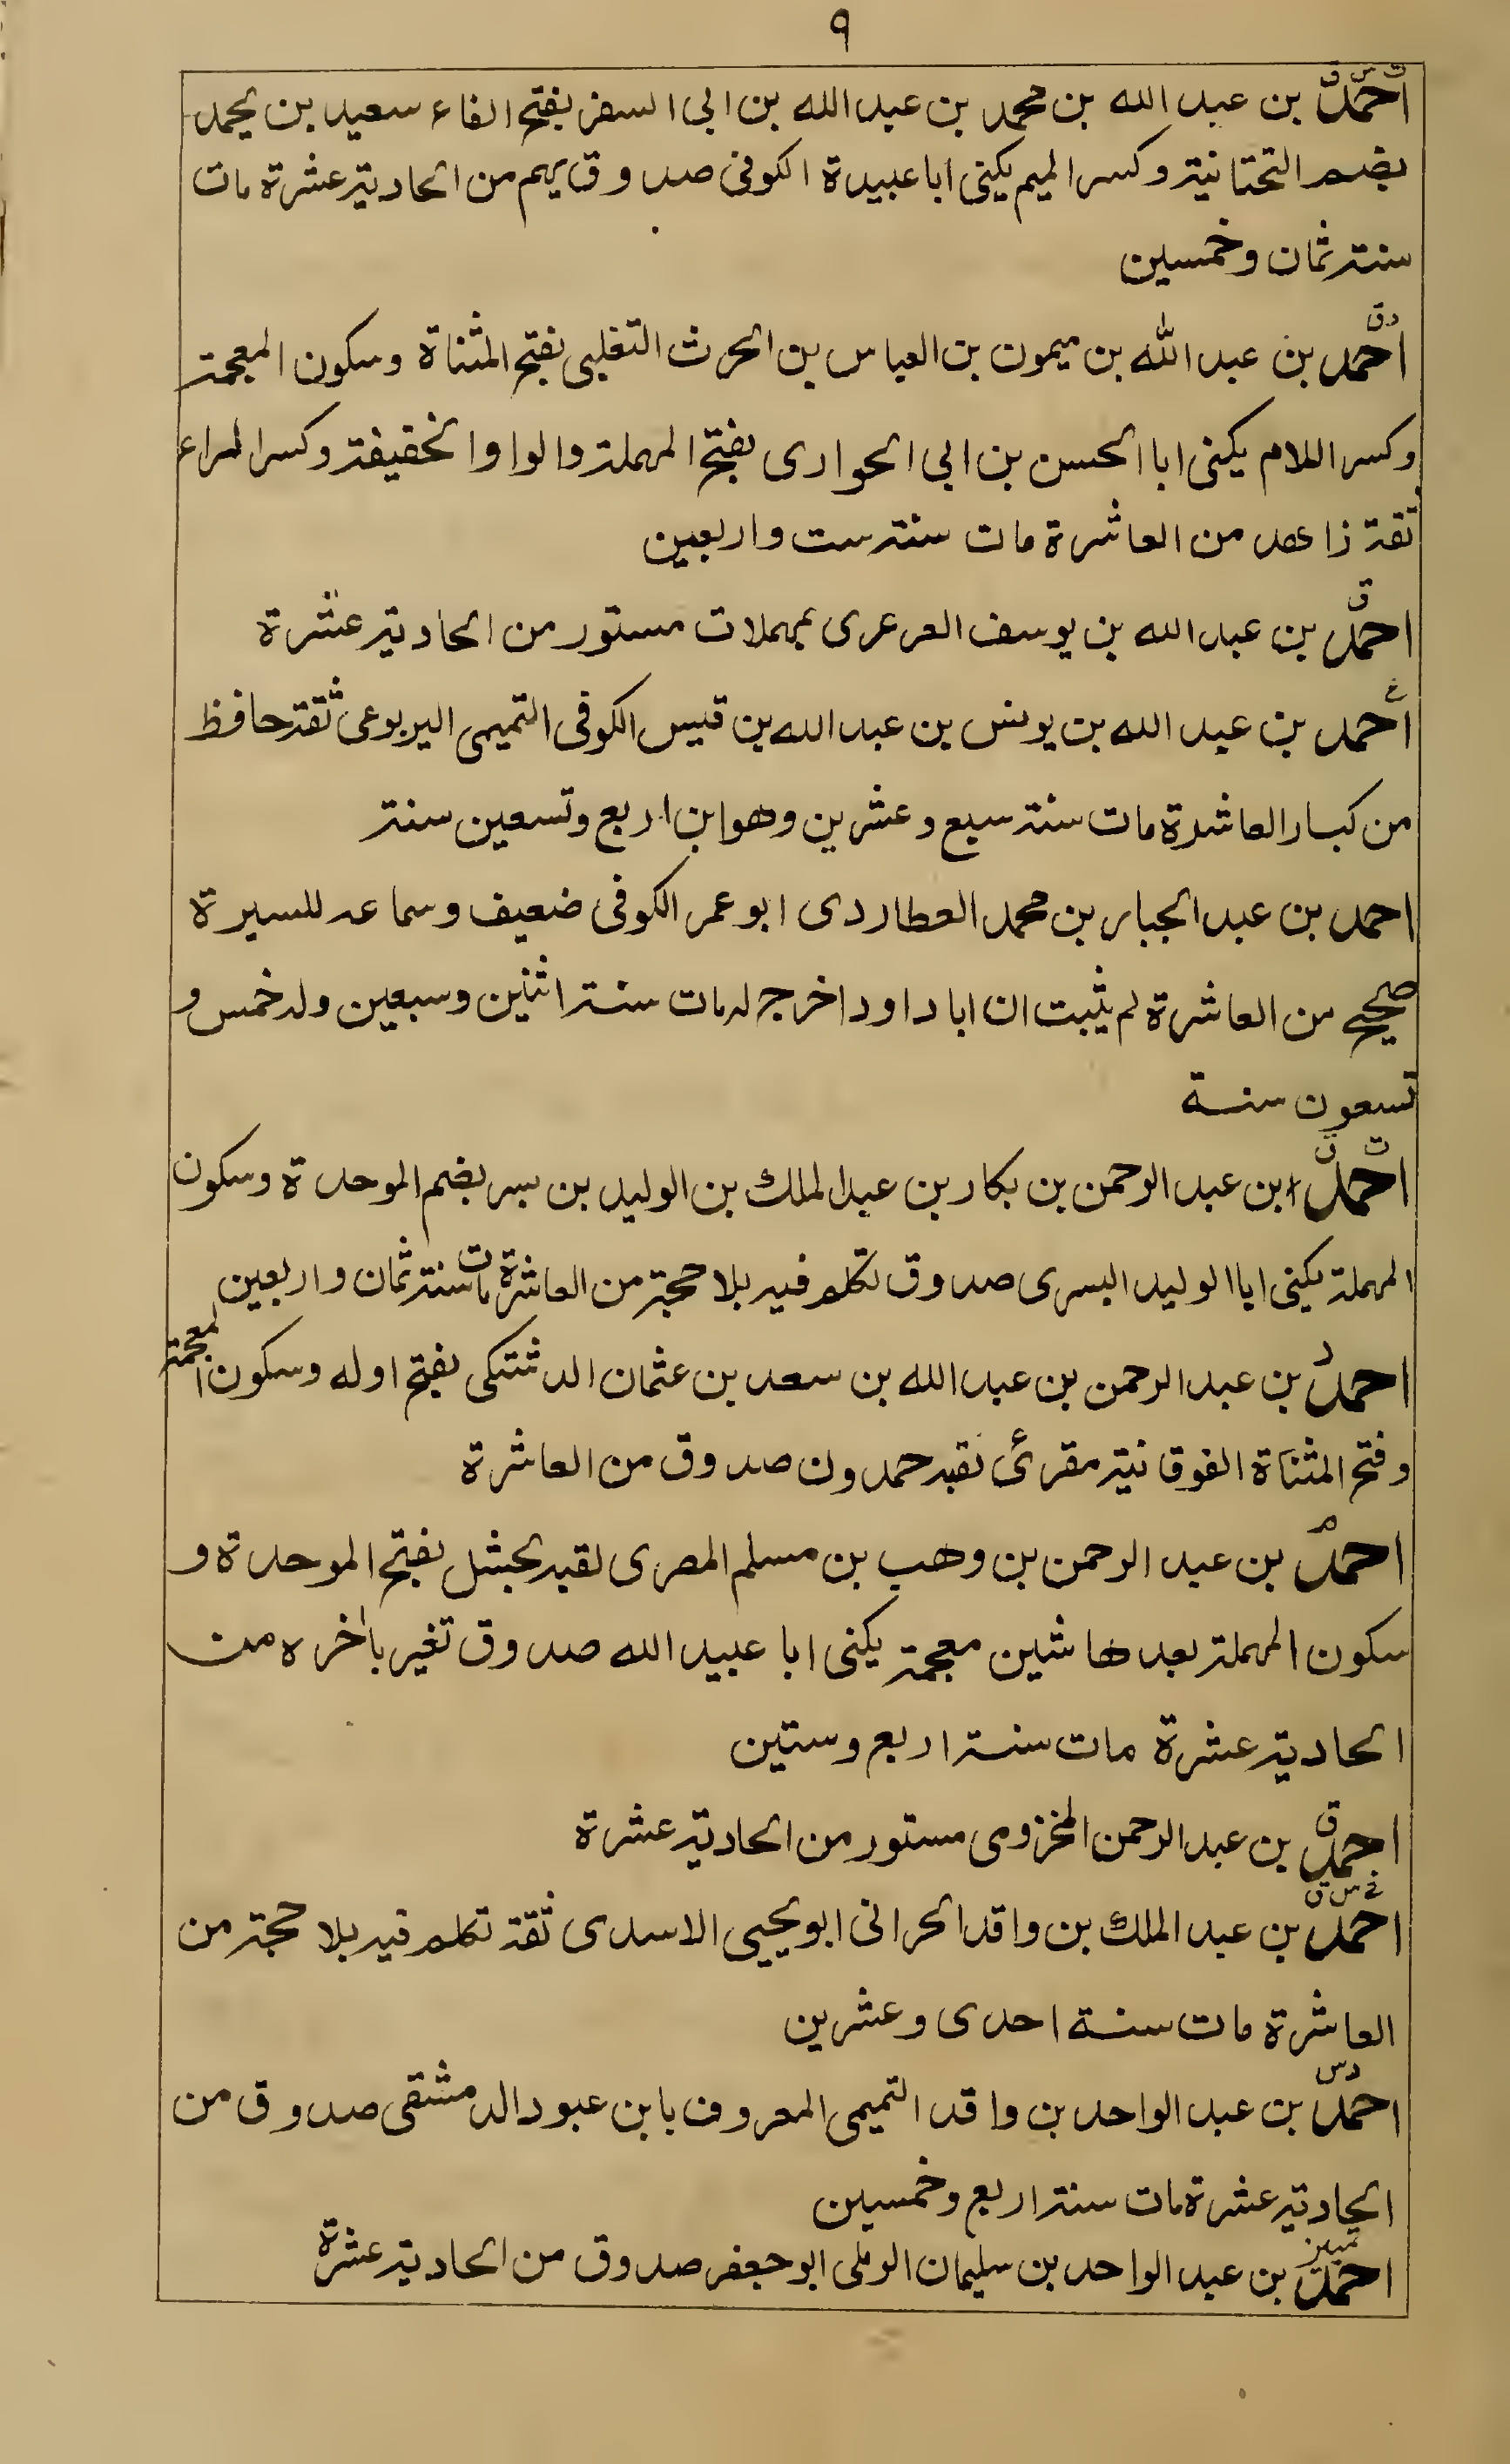 ٩
ت س ق
احمد بن عبد الله بن محمد بن عبد الله بن ابى السفر بفتح الفاء سعيد بن يحمد
بضم التحتانية وكسر الميم يكنى ابا عبيدة الكوفى صدوق يهم من الحادية عشرة مات
سنة ثمان وخمسين
دق
احمد بن عبد الله بن ميمون بن العباس بن الحرث التغلبى بفتح المثناة وسكون المعجمة
وكسر اللام يكنى ابا الحسن بن ابى الحوارى بفتح المهملة والواو الخفيفة وكسر الراء
ثقة زاهد من العاشرة مات سنة ست واربعين
ق
احمد بن عبد الله بن يوسف العرعرى بمهملات مستور من الحادية عشرة
ع
احمد بن عبد الله بن يونس بن عبد الله بن قيس الكوفى التميمى اليربوعى ثقة حافظ
من كبار العاشرة مات سنة سبع وعشرين وهو ابن اربع وتسعين سنة
احمد بن عبد الجبار بن محمد العطاردى ابو عمر الكوفى ضعيف وسماعه للسيرة
صحيح من العاشرة لم يثبت ان ابا داود اخرج له مات سنة اثنين وسبعين وله خمس و
تسعون سنة
ت ن
احمد ابن عبد الرحمن بن بكار بن عبد الملك بن الوليد بن بسر بضم الموحدة وسكون
المهملة يكنى ابا الوليد البسرى صدوق تكلم فيه بلا حجة من العاشرة مات سنة ثمان واربعين
د
احمد بن عبد الرحمن بن عبد الله بن سعد بن عثمان الدشتكى بفتح اوله وسكون المعجمة
وفتح المثناة الفوقانية مقرئ لقبه حمدون صدوق من العاشرة
م
احمد بن عبد الرحمن بن وهب بن مسلم المصرى لقبه بحشل بفتح الموحدة و
سكون المهملة بعدها شين معجمة يكنى ابا عبيد الله صدوق تغير باخره من
الحادية عشرة مات سنة اربع وستين
ق
احمد بن عبد الرحمن المخزومى مستور من الحادية عشرة
خ س ق
احمد بن عبد الملك بن واقد الحرانى ابو يحيى الاسدى ثقة تكلم فيه بلا حجة من
العاشرة مات سنة احدى وعشرين
دس
احمد بن عبد الواحد بن واقد التميمى المعروف بابن عبود الدمشقى صدوق من
الحادية عشرة مات سنة اربع وخمسين
تمييز
احمد بن عبد الواحد بن سليمان الرملى ابو جعفر صدوق من الحادية عشرة